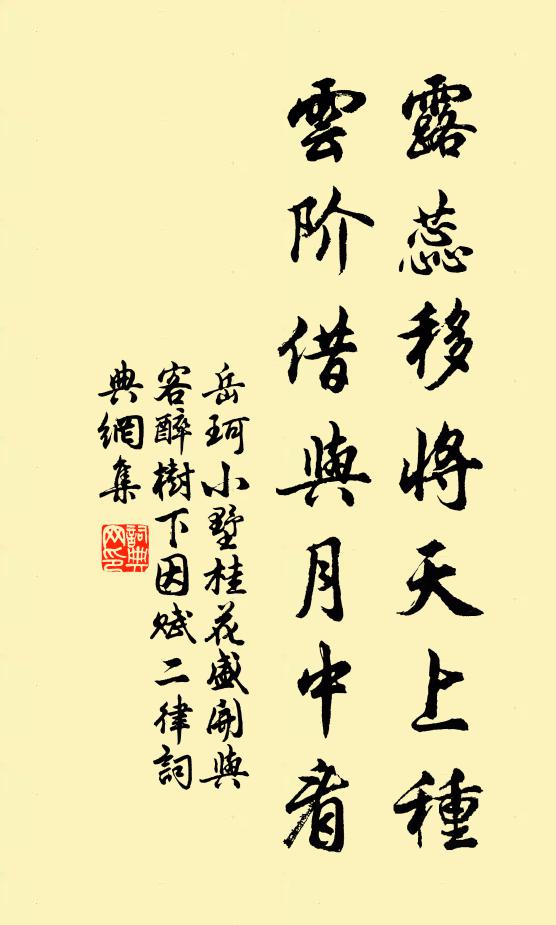 露蕊移將天上種
雲阶借與月中看
岳珂小墅桂花盛開與
客醉樹下因赋二律詞
典網集
詞典
网印